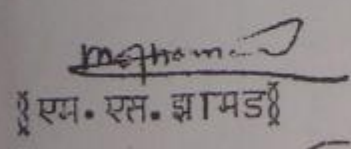 ॥ एम. एस. झामड ॥